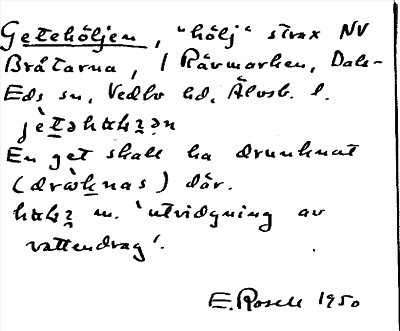 Getehöljen, "hölj" strax NV
Bråtarna, i Rävmarken, Dals-
Eds sn, Vedbo hd, Älvsb. l.
En get skall ha drunknat
(drʉknas) där.
m. 'utvidgning av
vattendrag'.
E. Rosell 1950